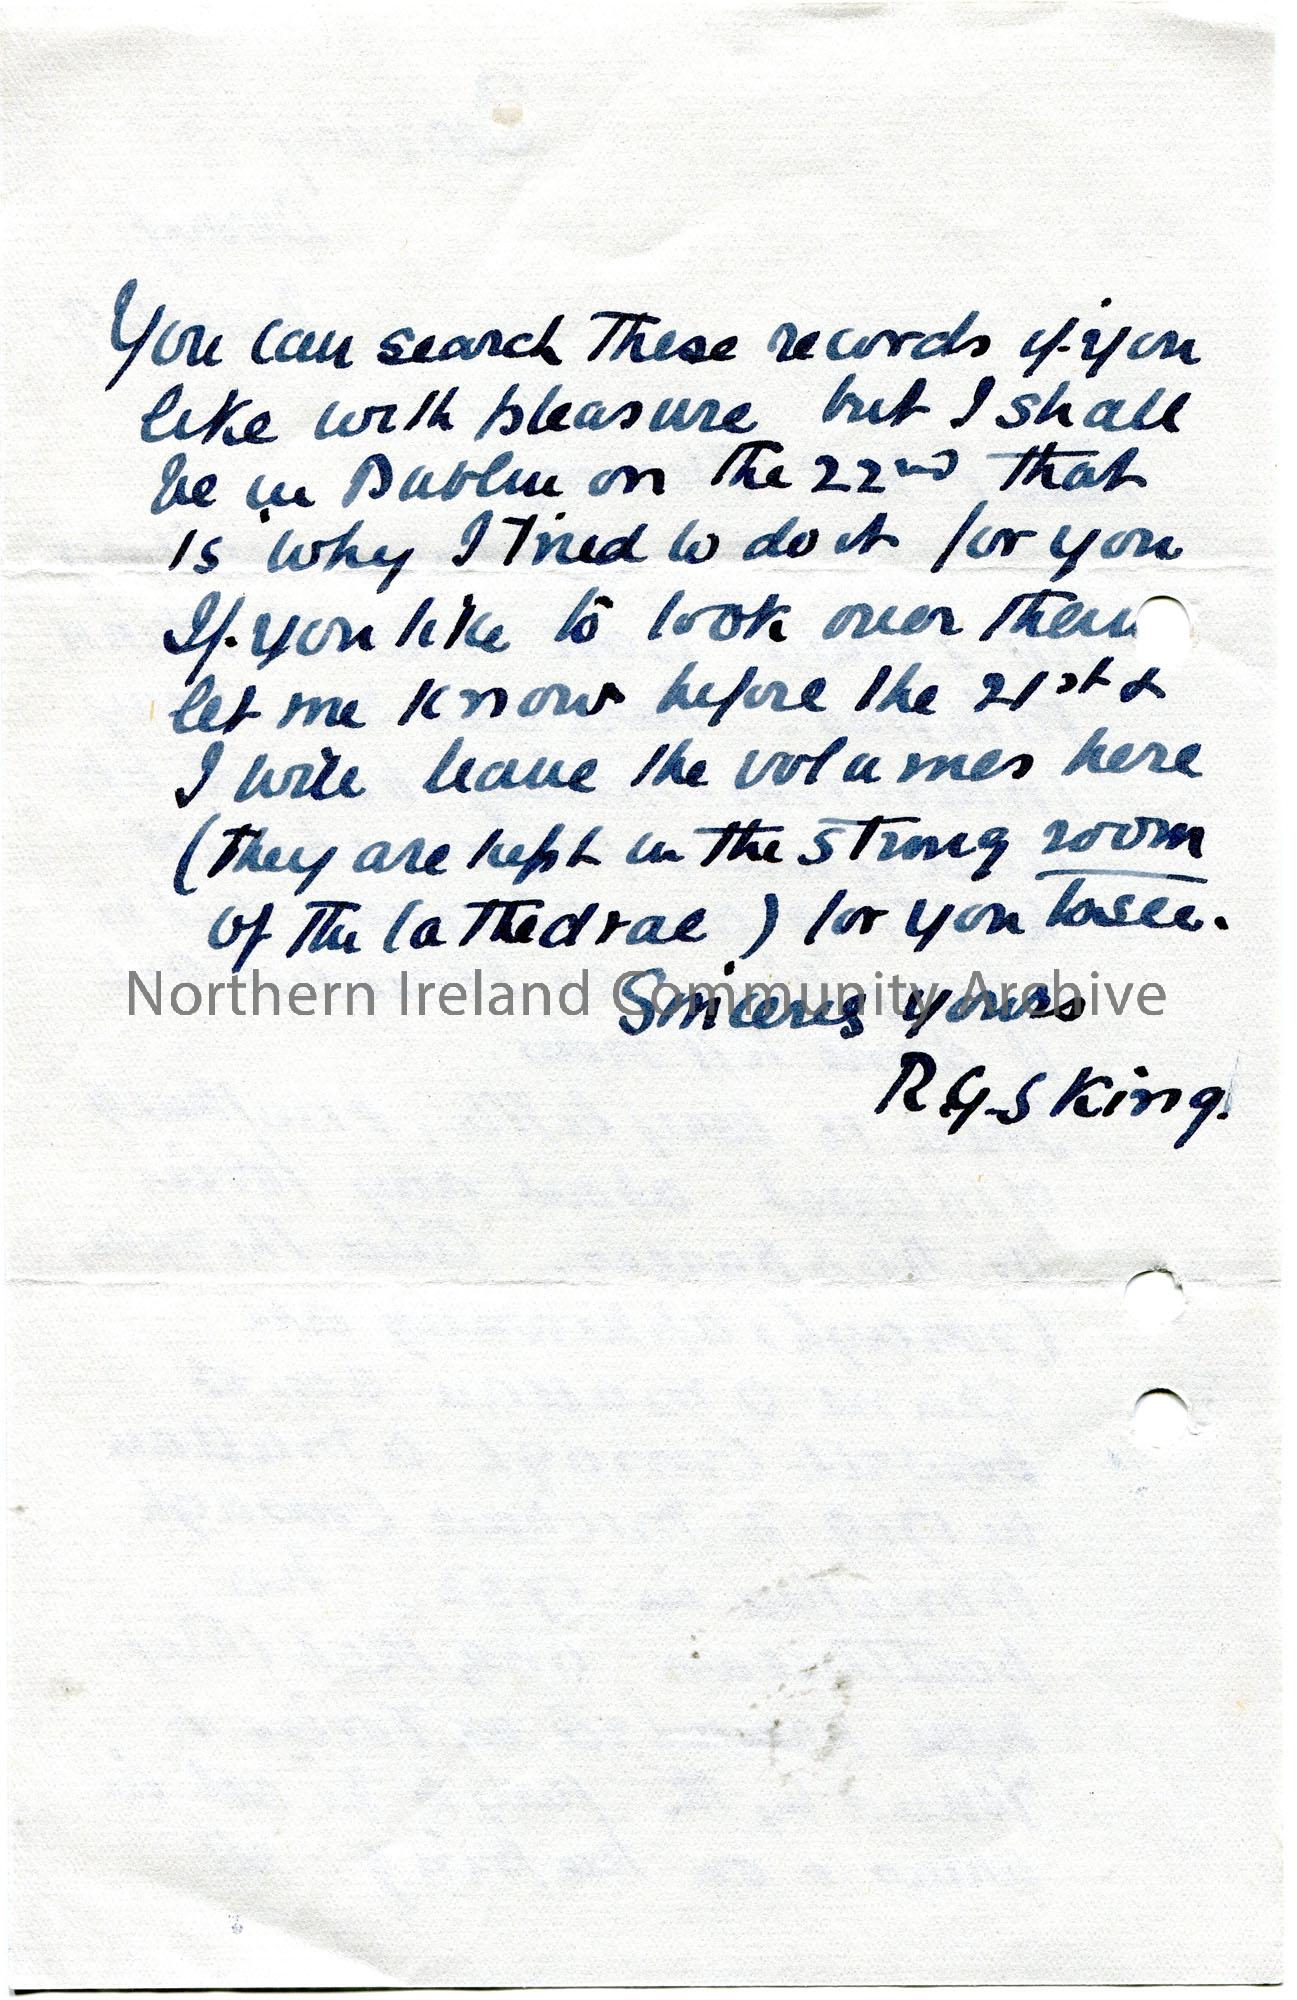 You can search these records if you
like with pleasure but I shall
be in Dublin on the 22nd that
is why I tried to do it for you
If you like to look over them
let me know before the 21st &
I will leave the volumes here
(they are kept in the strong room
of the Cathedral) for you to see.
Northern Ireland Community Archive
Sincerely yours
R G S King.